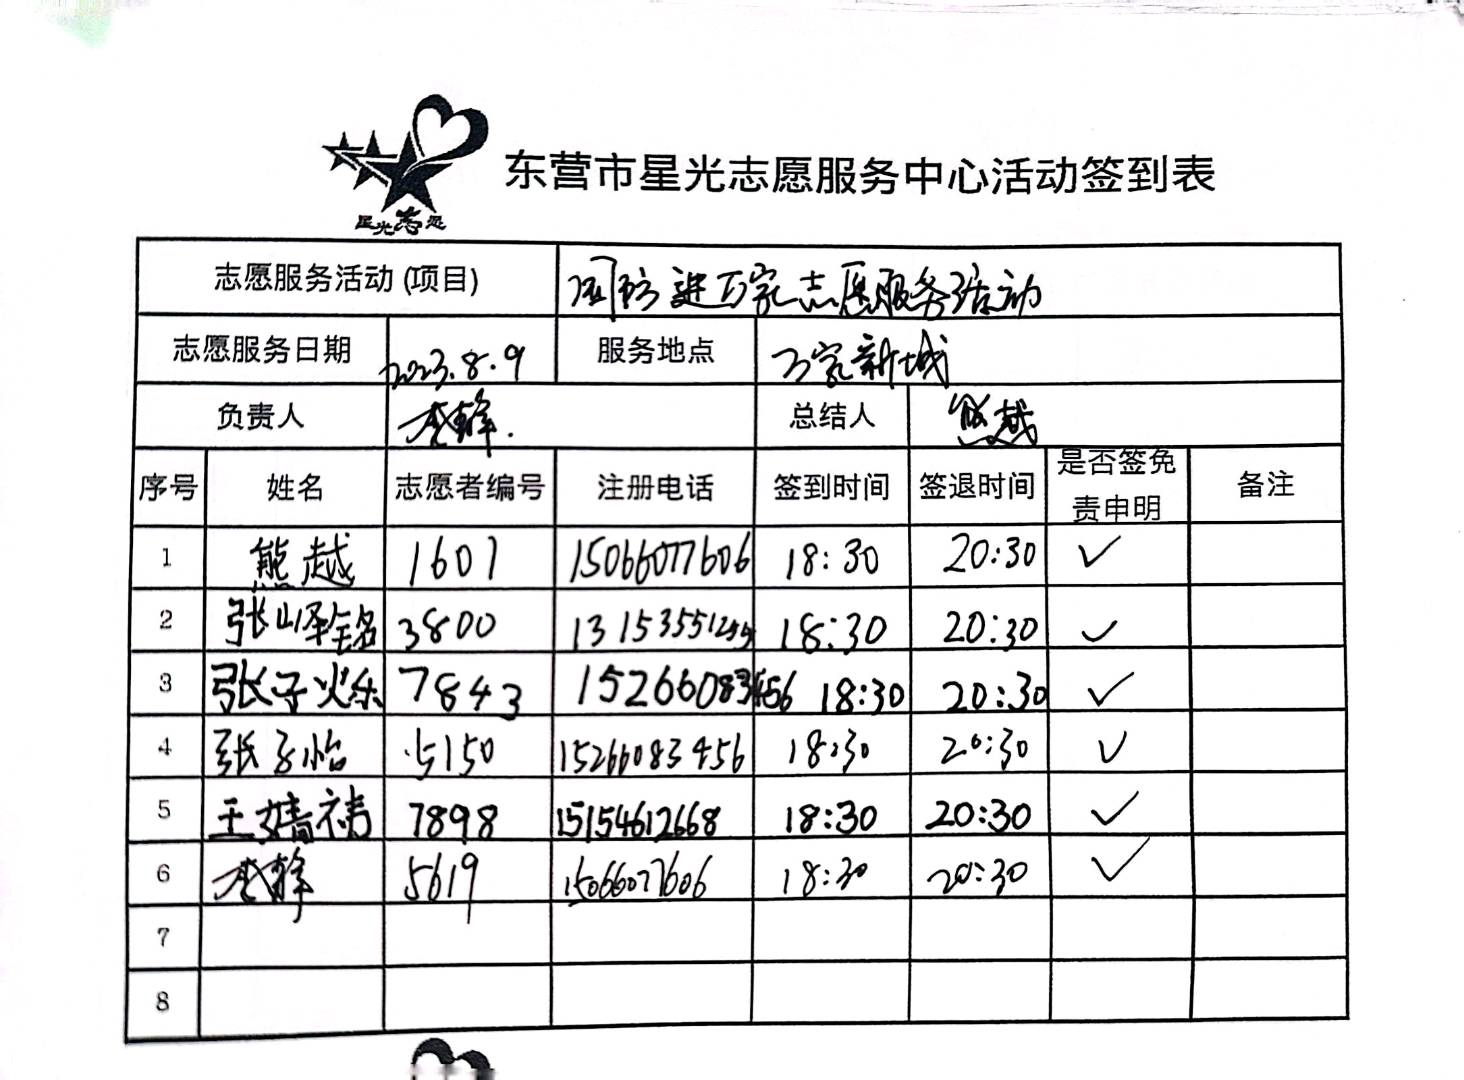 星光志愿
东营市星光志愿服务中心活动签到表
志愿服务活动(项目) 国防进万家志愿服务活动
志愿服务日期 2023.8.9 服务地点 万家新城
负责人 总结人 熊越
序号 姓名 志愿者编号 注册电话 签到时间 签退时间 是否签免责申明 备注
1 熊越 1607 15066077606 18:30 20:30 ✓
2 张峄铭 3800 18:30 20:30 ✓
3 张子烁 7843 15266083456 18:30 20:30 ✓
4 张子怡 5150 15266083456 18:30 20:30 ✓
5 王婧祎 7898 15154612668 18:30 20:30 ✓
6 5619 15066077606 18:30 20:30 ✓
7
8